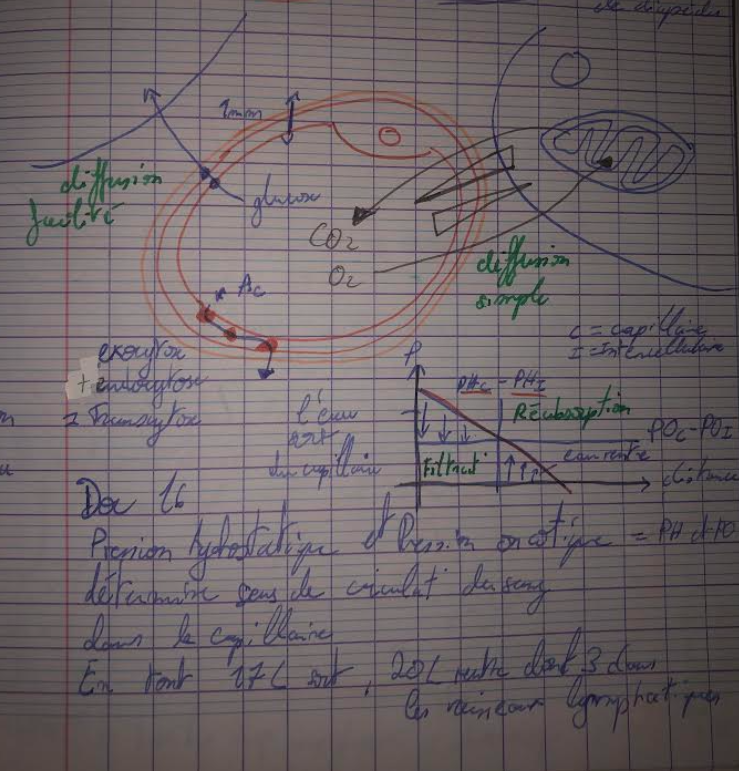 1mm
diffusion
facilité
glucose
CO2
O2
diffusion
simple
Ac
exocytose
+ endocytose
= Transcytose
C = capillaire
I = Intercellulaire
P
PHc - PHI
Réabsorption
l'eau
sort
du capillaire
Filtrat
POc-POI
constante
distance
Doc 16
Pression hydrostatique et Pression oncotique = PH et PO
détermine sens de circulat du sang
dans le capillaire
En tout 17L sort, 20L rentre dont 3 dans
les vaisseaux lymphatiques